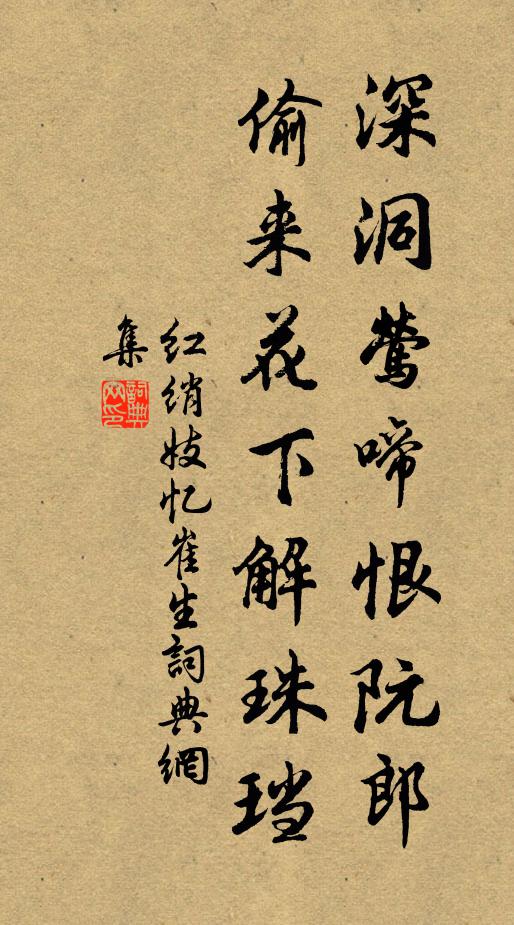 深洞莺啼恨阮郎
偷来花下解珠珰
红绡妓忆崔生詞典網
集
詞典網印